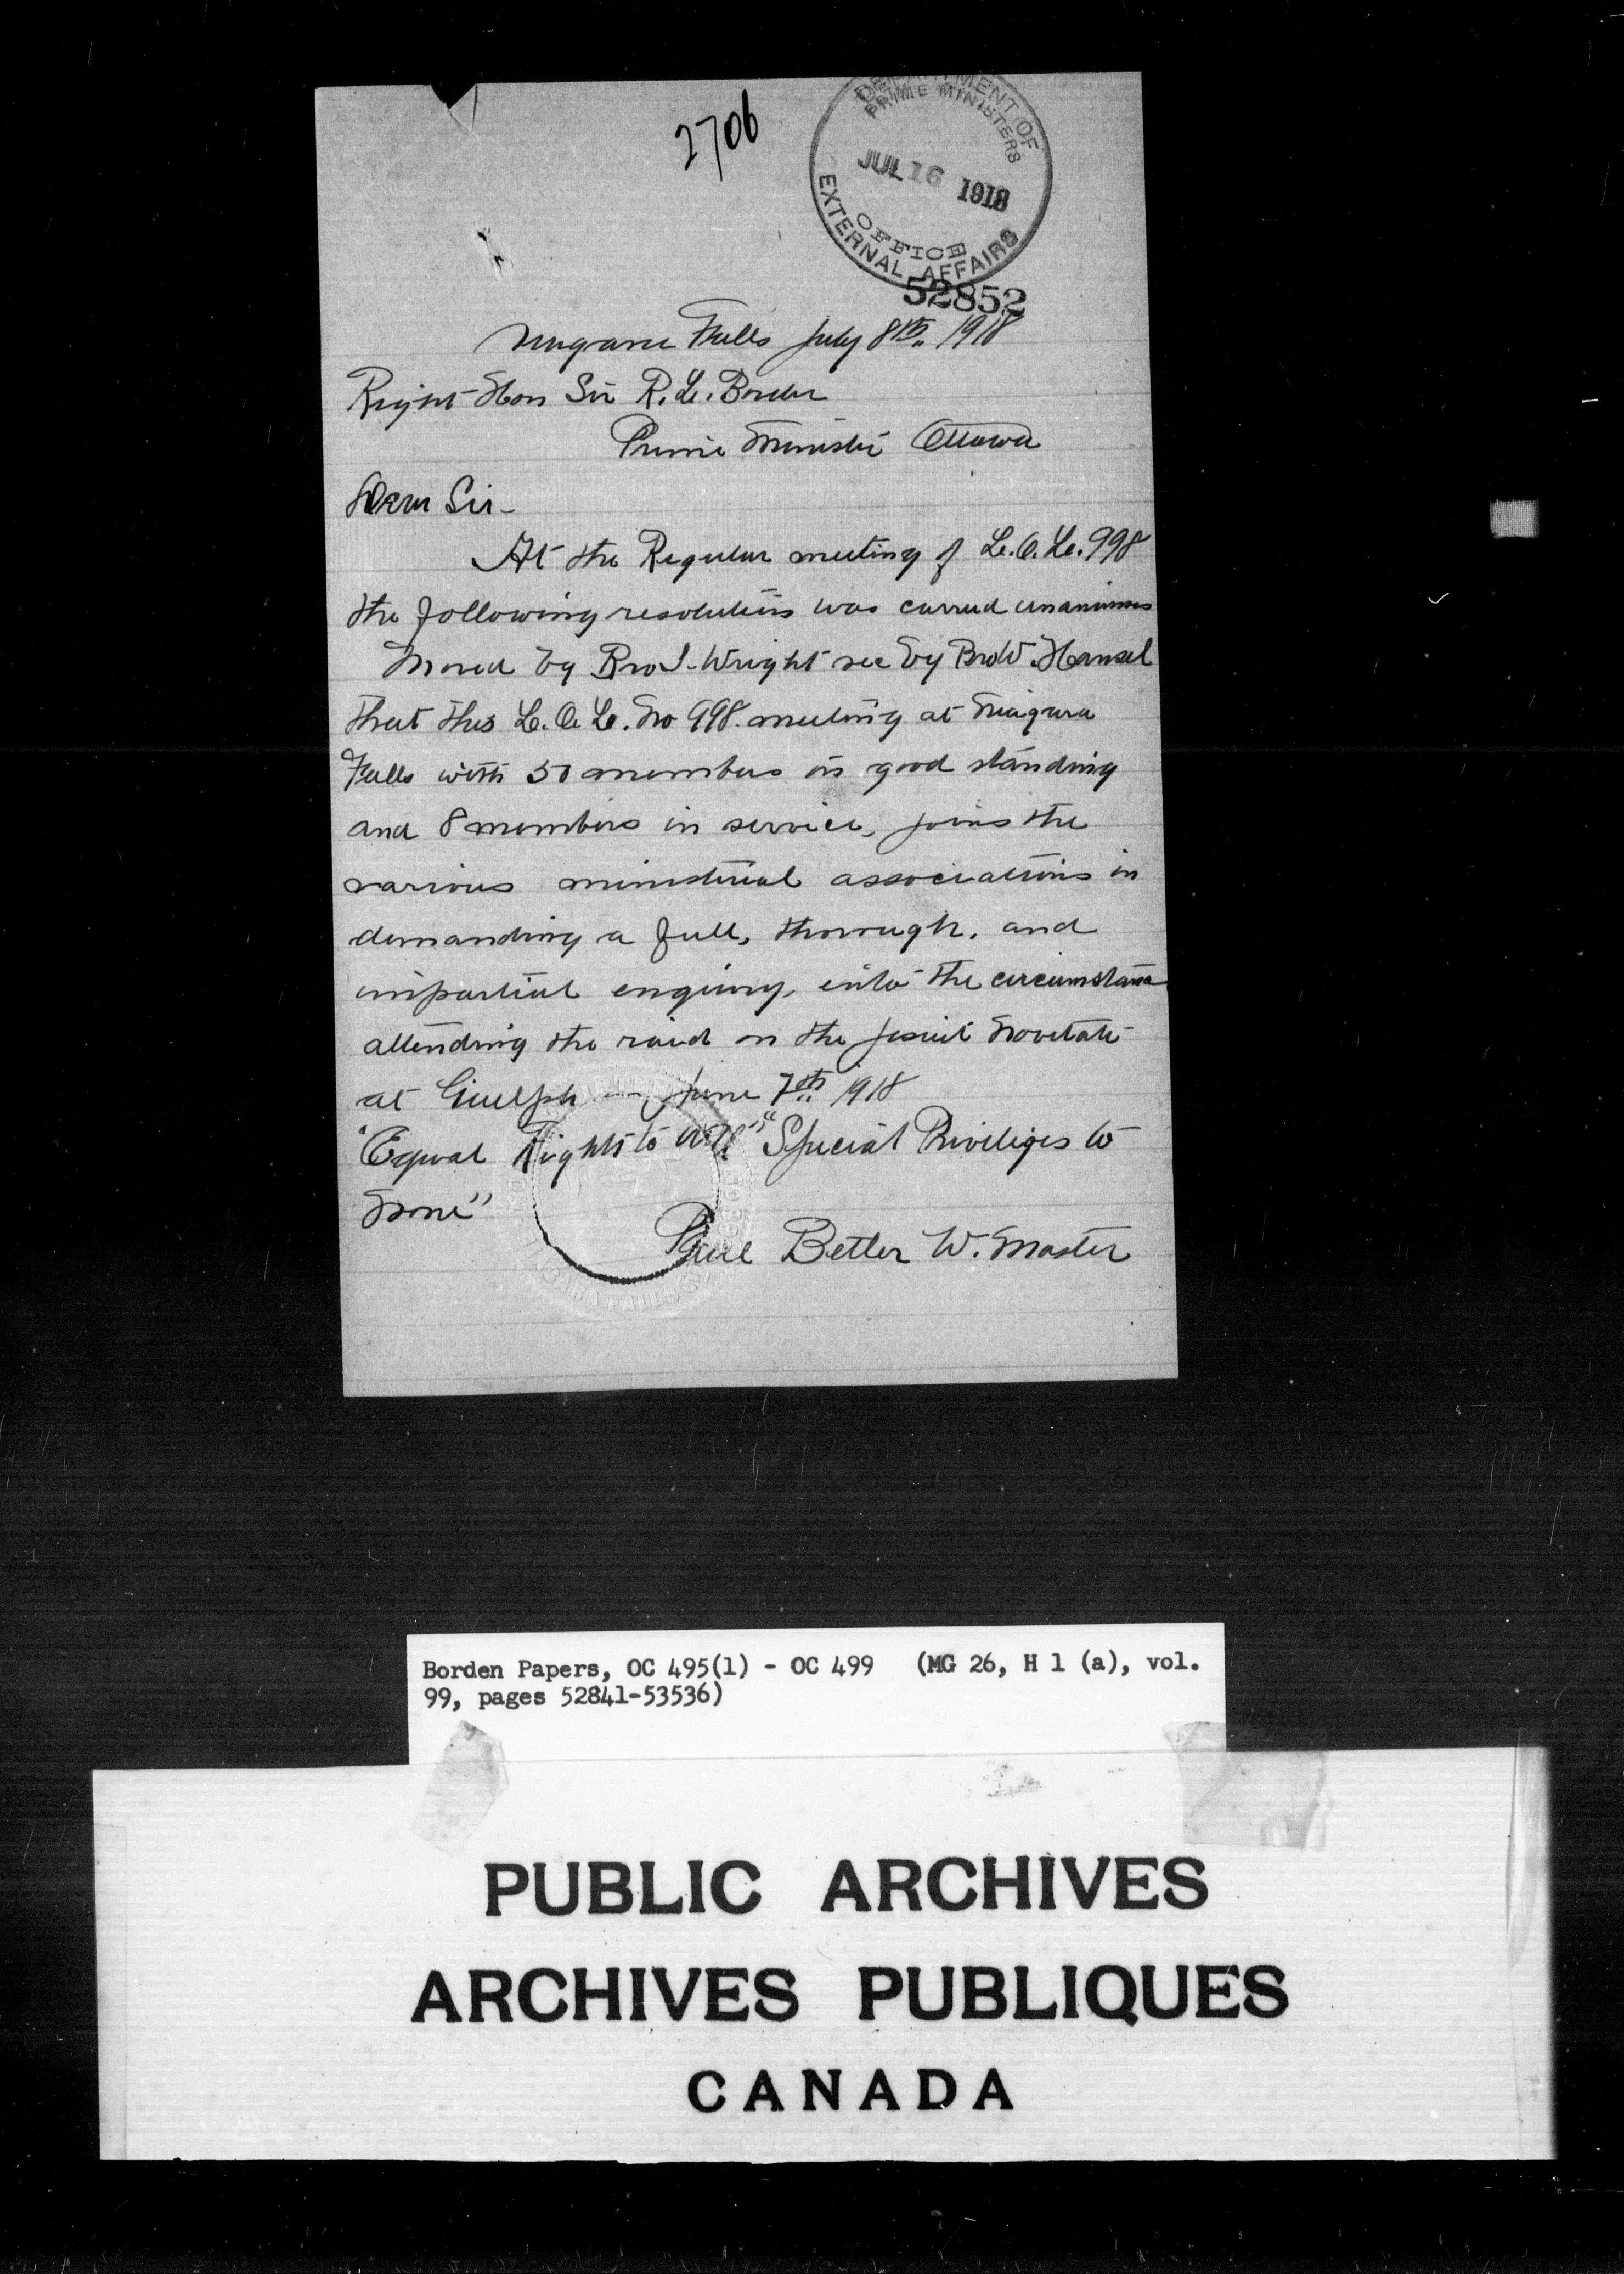 2706
DEPARTMENT OF
PRIME MINISTERS
JUL 16 1918
OFFICE
EXTERNAL AFFAIRS
52852
Niagara Falls July 8th 1918
Right Hon Sir R. L. Borden
Prime Minister Ottawa
Dear Sir-
At the Regular meeting of L.O.L. 998
the following resolution was carried unanimous
Moved by Bro J. Wright sec by Bro W. Hansel
that this L.O.L. No 998. meeting at Niagara
Falls with 50 members in good standing
and 8 members in service, joins the
various ministerial associations in
demanding a full, thorough, and
impartial enquiry, into the circumstance
attending the raid on the Jesuit Novitate
at Guelph on June 7th 1918
"Equal Rights to All" "Special Privileges to
None"
Paul Better W. Master
Borden Papers, OC 495(1) - OC 499 (MG 26, H 1 (a), vol.
99, pages 52841-53536)
PUBLIC ARCHIVES
ARCHIVES PUBLIQUES
CANADA